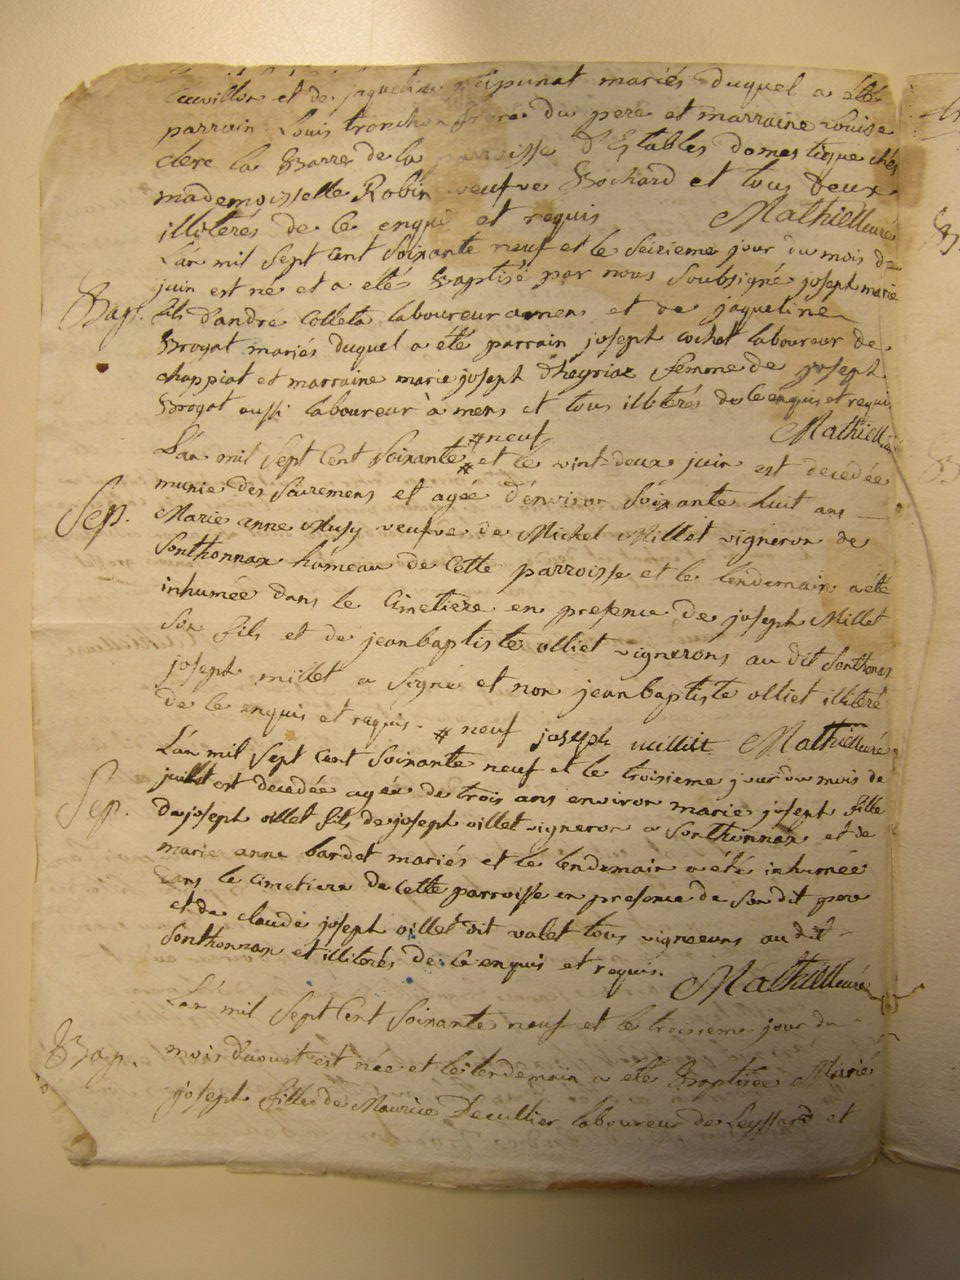 et de jaqueline mariés duquel a été
parrain Louis tronchon frere du pere et marraine Louise
clere la Barre de la parroisse d'Estables domestique chés
mademoisselle Robin veufve Bochard et tous deux
illiterés de ce enquis et requis Mathieu curé
L'an mil sept cent soixante neuf et le seizieme jour du mois de
juin est né et a etés Baptisé par nous soubsigné joseph marie
Bap. fils d'andré Colleta laboureur a mens et de jaqueline
Brogat mariés duquel a été parrain joseph cochet laboureur de
chappiat et marraine marie joseph d'heyriaz femme de joseph
Brogat aussi laboureur à mens et tous illiterés de ce enquis et requis
Mathieu
# neuf
L'an mil sept cent soixante # et le vint deux juin est decedée
munie des sacremens et agée d'environ soixante huit ans
Sep. Marie anne Musy veufve de Michel Millet vigneron de
Sonthonnax hameau de cette parroisse et le lendemain a été
inhumée dans le cimetiere en presence de joseph Millet
son fils et de jean baptiste olliet vignerons au dit Sonthonax
joseph millet a signé et non jean baptiste olliet illiteré
de ce enquis et requis. # neuf joseph millit Mathieu curé
L'an mil sept cent soixante neuf et le troisieme jour du mois de
juillet est decedée agée de trois ans environ marie joseph fille
Sep. de joseph villet fils de joseph villet vigneron a Sonthonnax et de
marie anne bardet mariés et le lendemain a été inhumée
dans le cimetiere de cette parroisse en presence de son dit pere
et de claude joseph villet dit valet tous vignerons au dit
Sonthonnax et illiterés de ce enquis et requis.
Mathieu curé
L'an mil sept cent soixante neuf et le troisieme jour du
Bap. mois d'aoust est née et le lendemain a eté Baptisée Marie
joseph fille de Maurice Decullier laboureur de Leyssard et